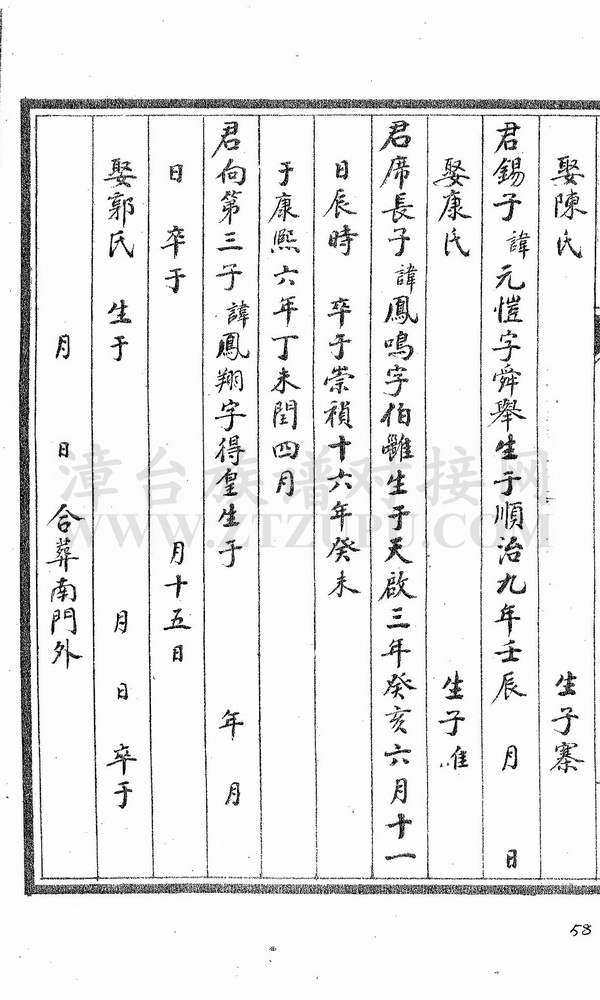 娶陳氏 生子寨
君錫子諱元愷字舜舉生于順治九年壬辰 月 日
娶康氏 生子淮
君席長子諱鳳鳴字伯雝生于天啟三年癸亥六月十一
日辰時 卒于崇禎十六年癸未
于康熙六年丁未閏四月
君向第三子諱鳳翔字得皇生于 年 月
日 卒于 月十五日
娶郭氏 生于 月 日 卒于
月 日 合葬南門外
漳台族谱对接网
WWW.ZTZUPU.COM
58